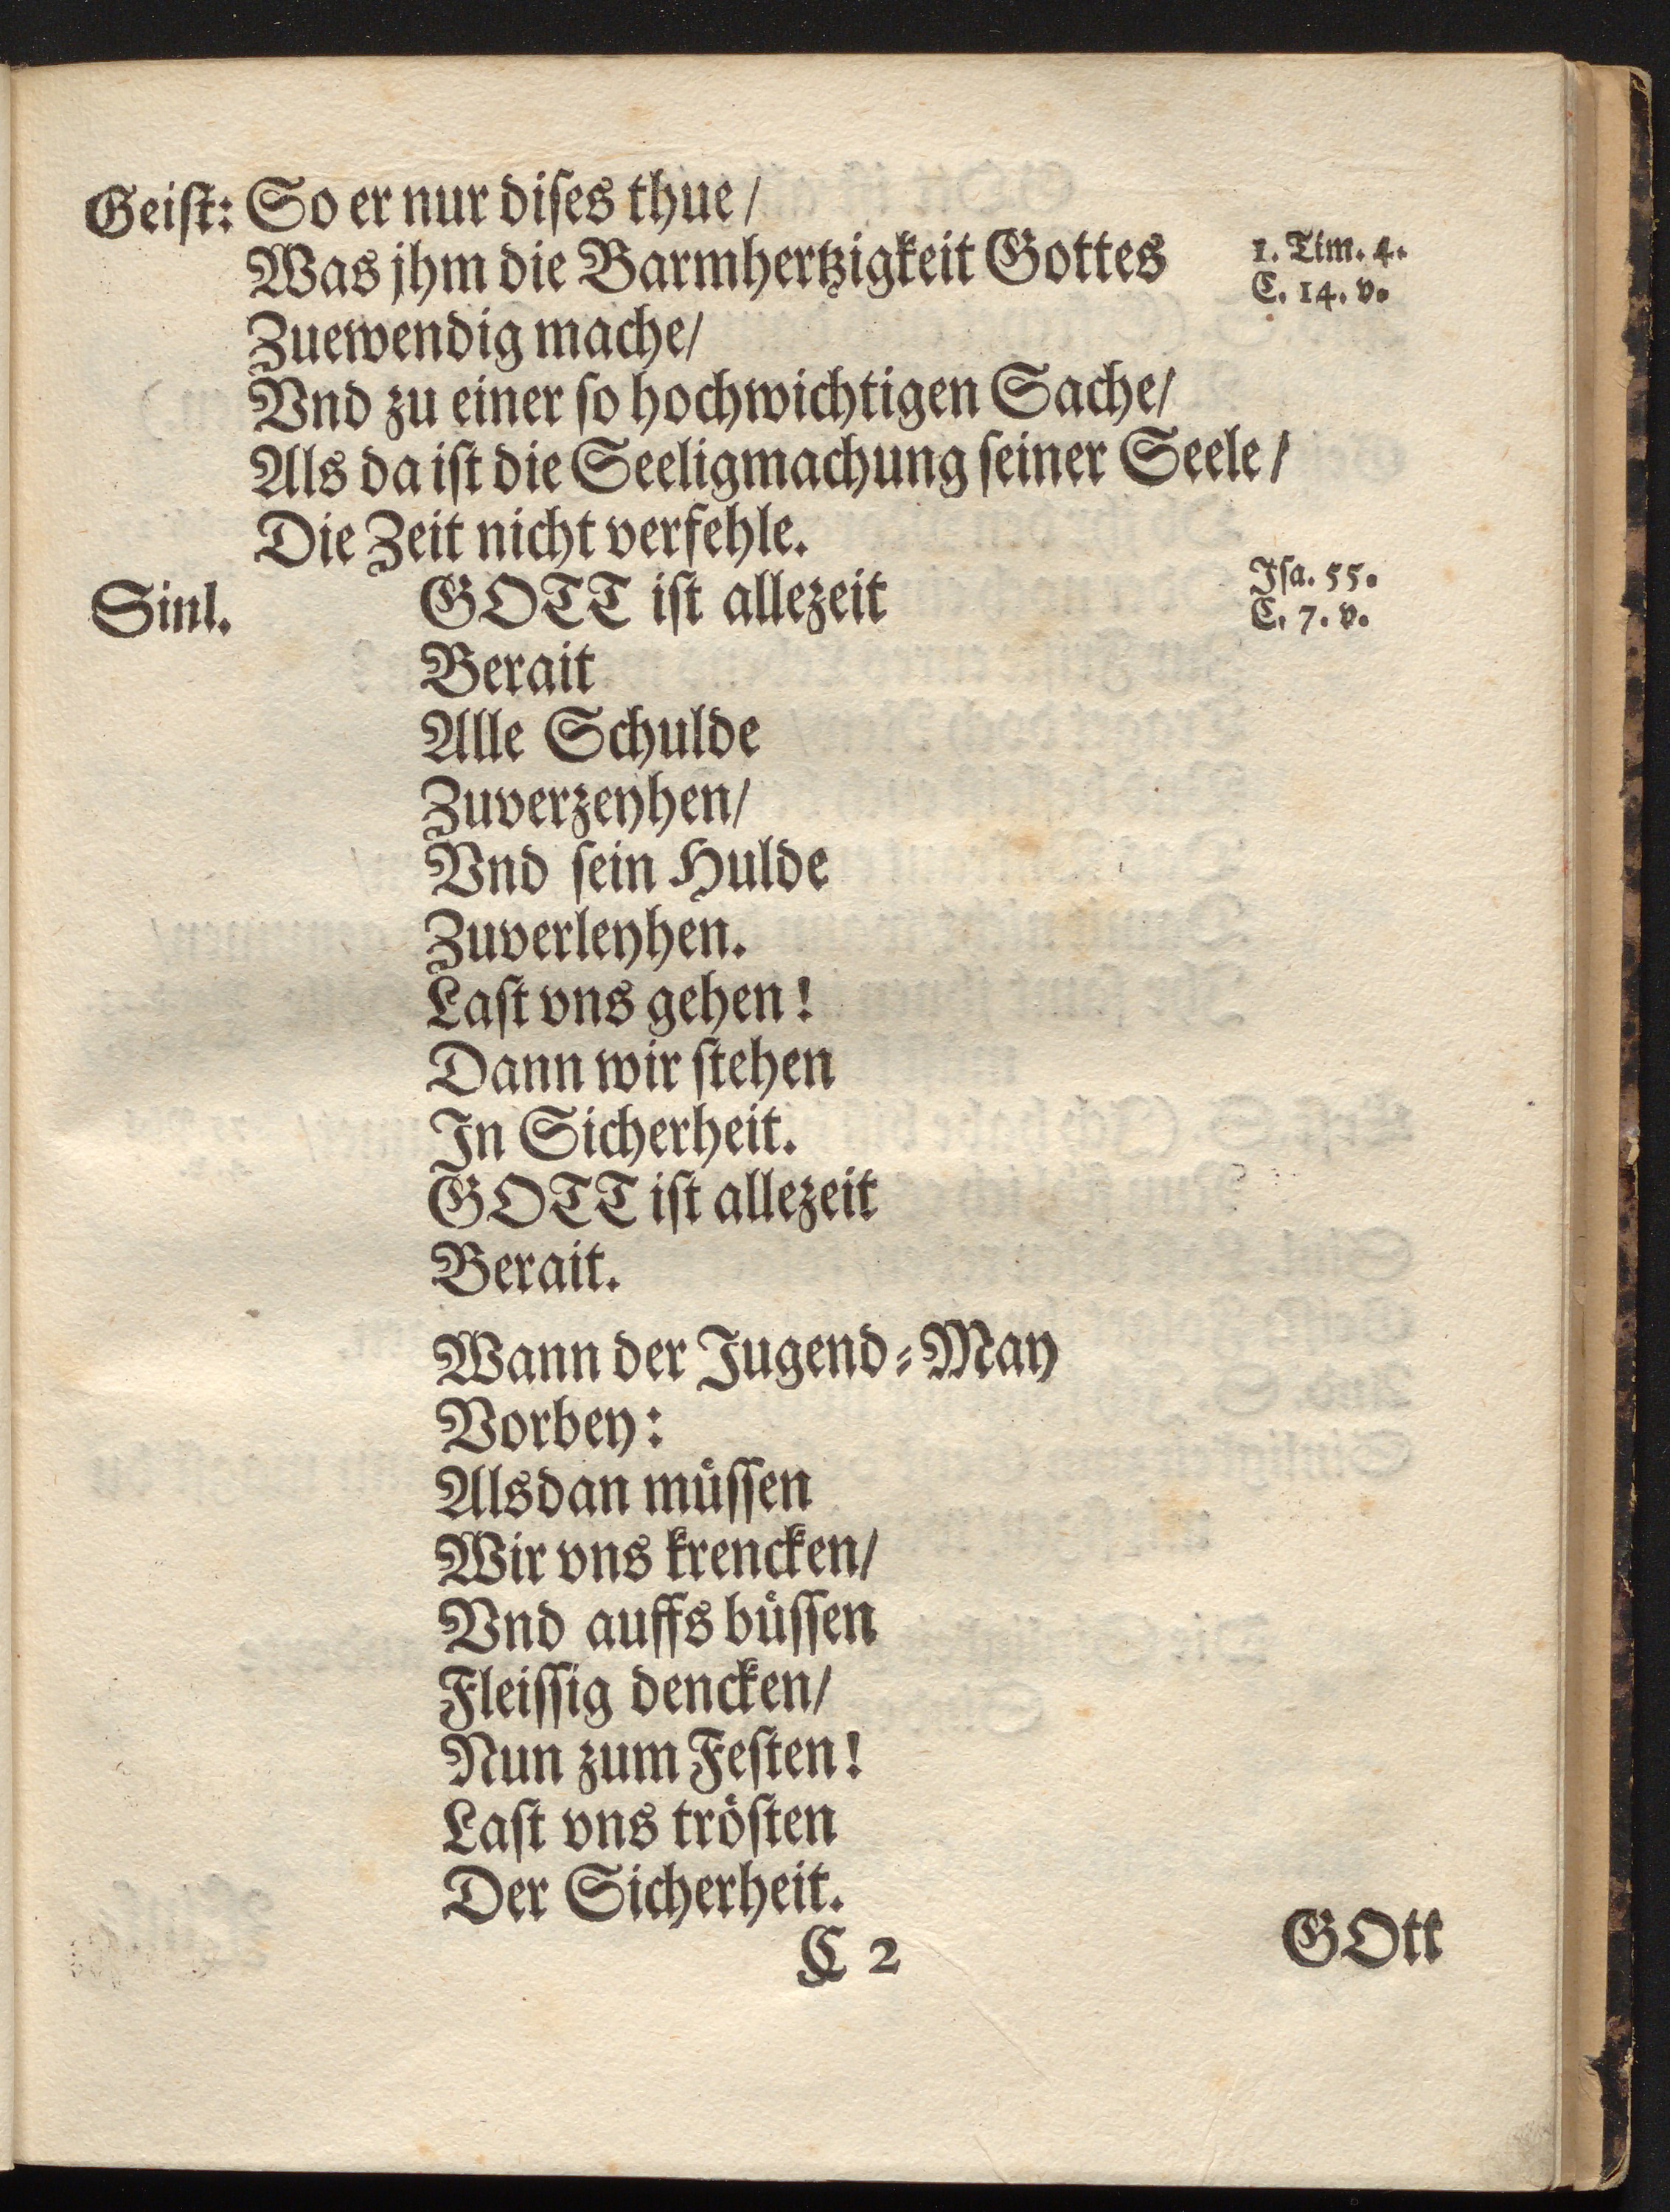 Geiſt: So er nur diſes thue /
Was jhm die Barmhertzigkeit Gottes
1. Tim. 4.
C. 14. v.
Zuewendig mache/
Vnd zu einer ſo hochwichtigen Sache/
Als da iſt die Seeligmachung ſeiner Seele /
Die Zeit nicht verfehle.
Sinl. GOTT iſt allezeit
Iſa. 55.
C. 7. v.
Berait
Alle Schulde
Zuverzeyhen/
Vnd ſein Hulde
Zuverleyhen.
Laſt vns gehen!
Dann wir ſtehen
In Sicherheit.
GOTT iſt allezeit
Berait.
Wann der Jugend-May
Vorbey:
Alsdan müſſen
Wir vns krencken/
Vnd auffs büſſen
Fleiſſig dencken/
Nun zum Feſten!
Laſt vns tröſten
Der Sicherheit.
C 2
GOtt